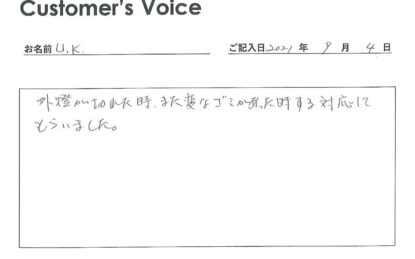 Customer's Voice
お名前 U.K. ご記入日 2021 年 9 月 4 日
外燈が切れた時、また変なゴミがあった時する対応して
もらいました。